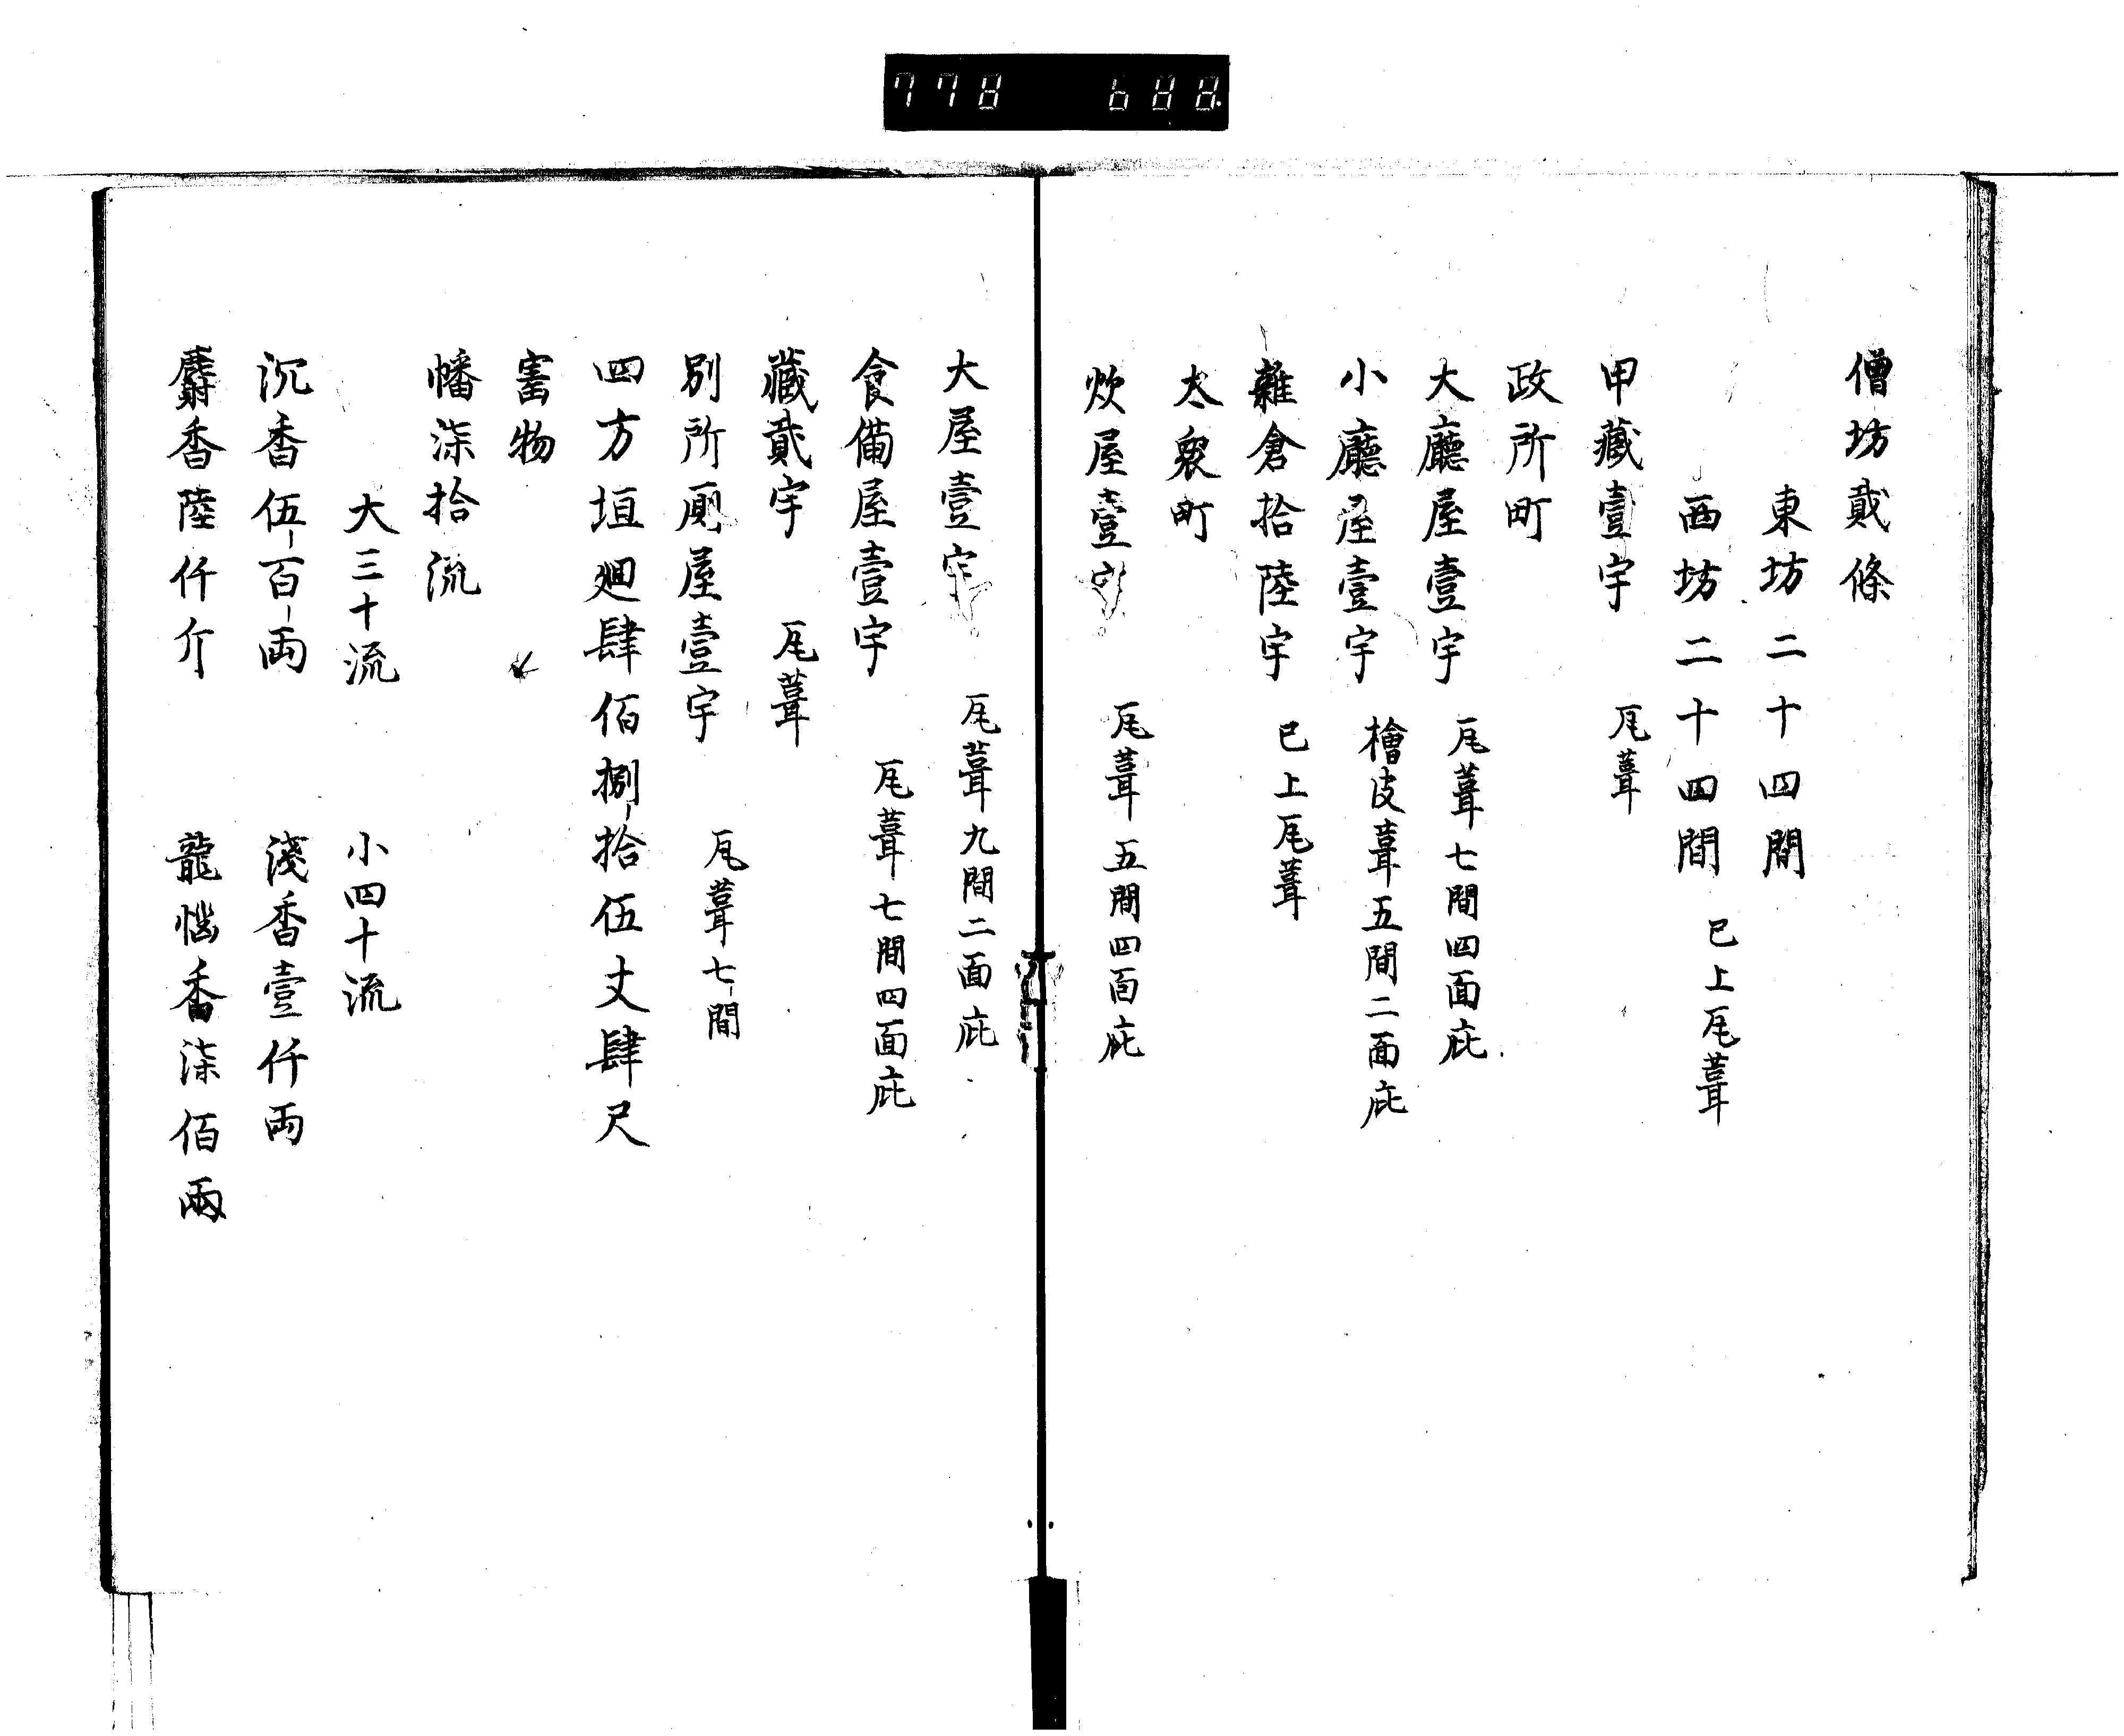 778 688.
僧坊貮條
東坊二十四間
西坊二十四間 已上瓦葺
甲藏壹宇 瓦葺
政所町
大廳屋壹宇 瓦葺七間四面庇
小廳屋壹宇 檜皮葺五間二面庇
雜倉拾陸宇 已上瓦葺
太衆町
炊屋壹宇 瓦葺五間四面庇
大屋壹宇 瓦葺九間二面庇
食備屋壹宇 瓦葺七間四面庇
藏貮宇 瓦葺
別所厠屋壹宇 瓦葺七間
四方垣廻肆佰捌拾伍丈肆尺
物
幡柒拾流
大三十流 小四十流
沉香伍百両 淺香壹仟両
麝香陸仟斤 龍惱香柒佰兩